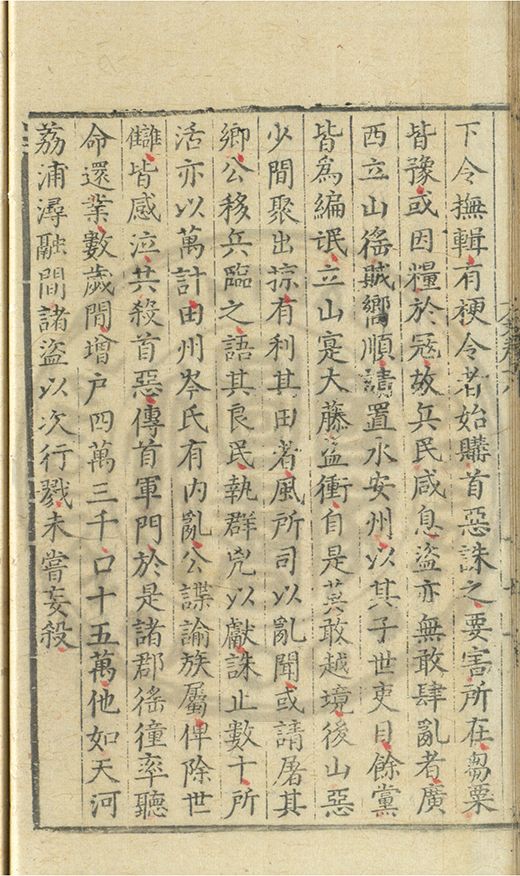 下令撫輯有梗令者始購首惡誅之要害所在芻粟
皆豫或因糧於冦故兵民咸息盜亦無敢肆亂者廣
西立山徭賊嚮順請置永安州以其子世吏目餘黨
皆爲編氓立山寔大藤盜衝自是莫敢越境後山惡
少間聚出掠有利其田者風所司以亂聞或請屠其
鄉公移兵臨之語其良民執群兇以獻誅止數十所
活亦以萬計田州岑氏有内亂公諜諭族屬俾除世
讎皆感泣共殺首惡傳首軍門於是諸郡徭獞率聽
命還業數歲間增户四萬三千口十五萬他如天河
荔浦潯融間諸盜以次行戮未嘗妄殺